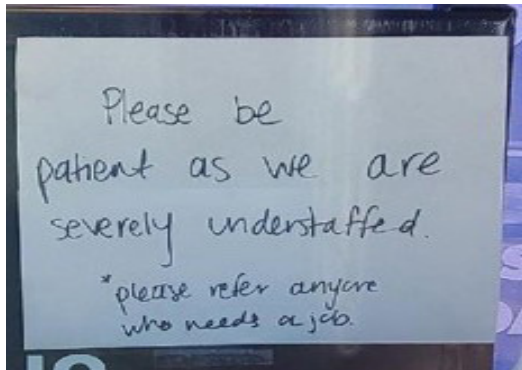 Please be
patient as we are
severely understaffed.
*please refer anyone
who needs a job.